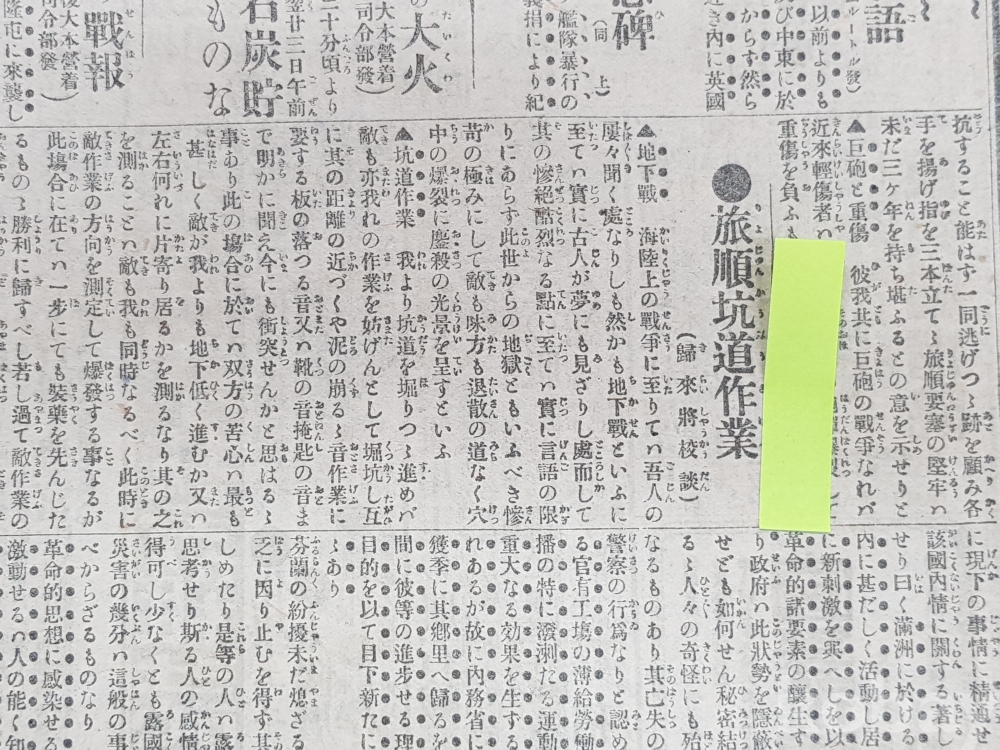 語
ルートル發）
以前よりも
及び中東に於
からす然ら
近き內に英國
碑
（同　上）
艦隊暴行の
義捐により紀
大火
たいくわ
大本營着
司令部發）
二十分頃より
翌廿三日午前
石炭貯
ものな
戰報
せんぱう
後大本營着
司令部發）
隆屯に來襲し
抗すること能はす一同逃げつゝ跡を顧み各
手を揚げ指を三本立てゝ旅順要塞の堅牢ハ
未だ三ケ年を持ち堪ふるとの意を示せりと
▲巨砲と重傷　彼我共に巨砲の戰爭なれバ
近來輕傷者ハ
重傷を負ふも
●旅順坑道作業
（歸來將校談）
▲地下戰　海陸上の戰爭に至りてハ吾人の
屢々聞く處なりしも然かも地下戰といふに
至てハ實に古人が夢にも見ざりし處而して
其の慘絕酷烈なる點に至てハ實に言語の限
りにあらす此世からの地獄ともいふべき慘
苦の極みにして敵も味方も退散の道なく穴
中の爆裂に鏖殺の光景を呈すといふ
▲坑道作業　我より坑道を堀りつゝ進めバ
敵も亦我れの作業を妨げんとして堀坑し互
に其の距離の近づくや泥の崩るゝ音作業に
要する板の落つる音又ハ靴の音掩匙の音ま
で明かに聞え今にも衝突せんかと思はるゝ
事あり此の塲合に於てハ双方の苦心ハ最も
甚しく敵が我よりも地下低く進むか又ハ
左右何れに片寄り居るかを測るなり其の之
を測ることハ敵も我も同時なるべく此時に
敵作業の方向を測定して爆發する事なるが
此塲合に在てハ一步にても裝藥を先んじた
るものゝ勝利に歸すべし若し過て敵作業の
に現下の事情に精通せ
該國內情に關する著し
せり曰く滿洲に於ける
內に甚だしく活動し居
に新刺激を與へしを以
革命的諸要素の釀生す
り政府ハ此狀勢を隱蔽
せども如何せん秘密結
るゝ人々の奇怪にも殆
なるものあり其亡失の
警察の行爲なりと認め
る官有工塲の薄給勞働
播の特に潑溂たる運動
重大なる効果を生する
れあるが故に內務省に
獲季に其鄕里へ歸るを
間に彼等の進步せる理
目的を以て目下新たに
ゝあり
芬蘭の紛擾未だ熄ざる
之に因り止むを得す其
しめたり是等の人ハ露
思考せり斯る人の感情
得可し少なくとも露國
災害の幾分ハ這般の事
べからざるものなり
革命的思想に感染せる
激動せるハ人の能く知